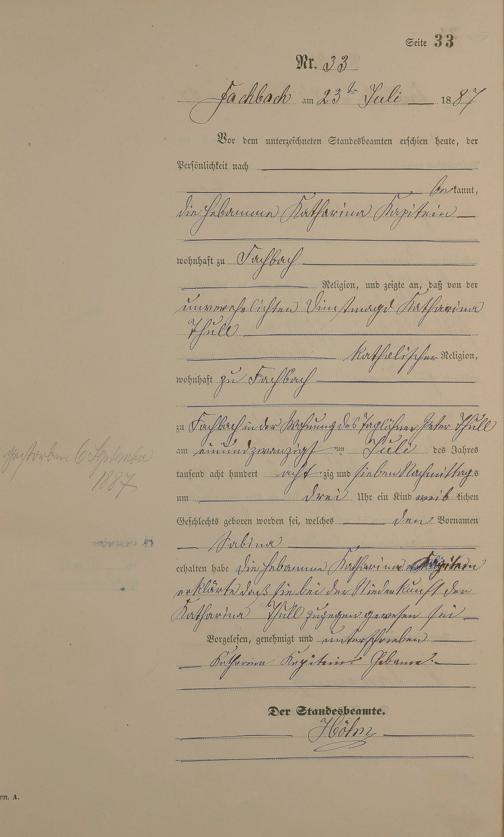 Seite 33
Nr. 33
Fachbach am 23ten Juli 1887
Vor dem unterzeichneten Standesbeamten erschien heute, der
Persönlichkeit nach
bekannt,
die Hebamme Katharina Kapitein
wohnhaft zu Fachbach
Religion, und zeigte an, daß von der
unverehelichten Dienstmagd Katharina
Thull
katholischer Religion,
wohnhaft zu Fachbach
zu Fachbach in der Wohnung des Taglöhner Peter Thull
am einundzwanzigst ten Juli des Jahres
tausend acht hundert achtzig und sieben Nachmittags
um drei Uhr ein Kind weiblichen
Geschlechts geboren worden sei, welches den Vornamen
Sabina
erhalten habe die Hebamme Katharina Kapitein
erklärte daß sie bei der Niederkunft der
Katharina Thull zugegen gewesen sei
Vorgelesen, genehmigt und unterschrieben
Katharina Kapitein Hebame
Der Standesbeamte.
Höhn
gestorben 6 September
1887
rm. A.